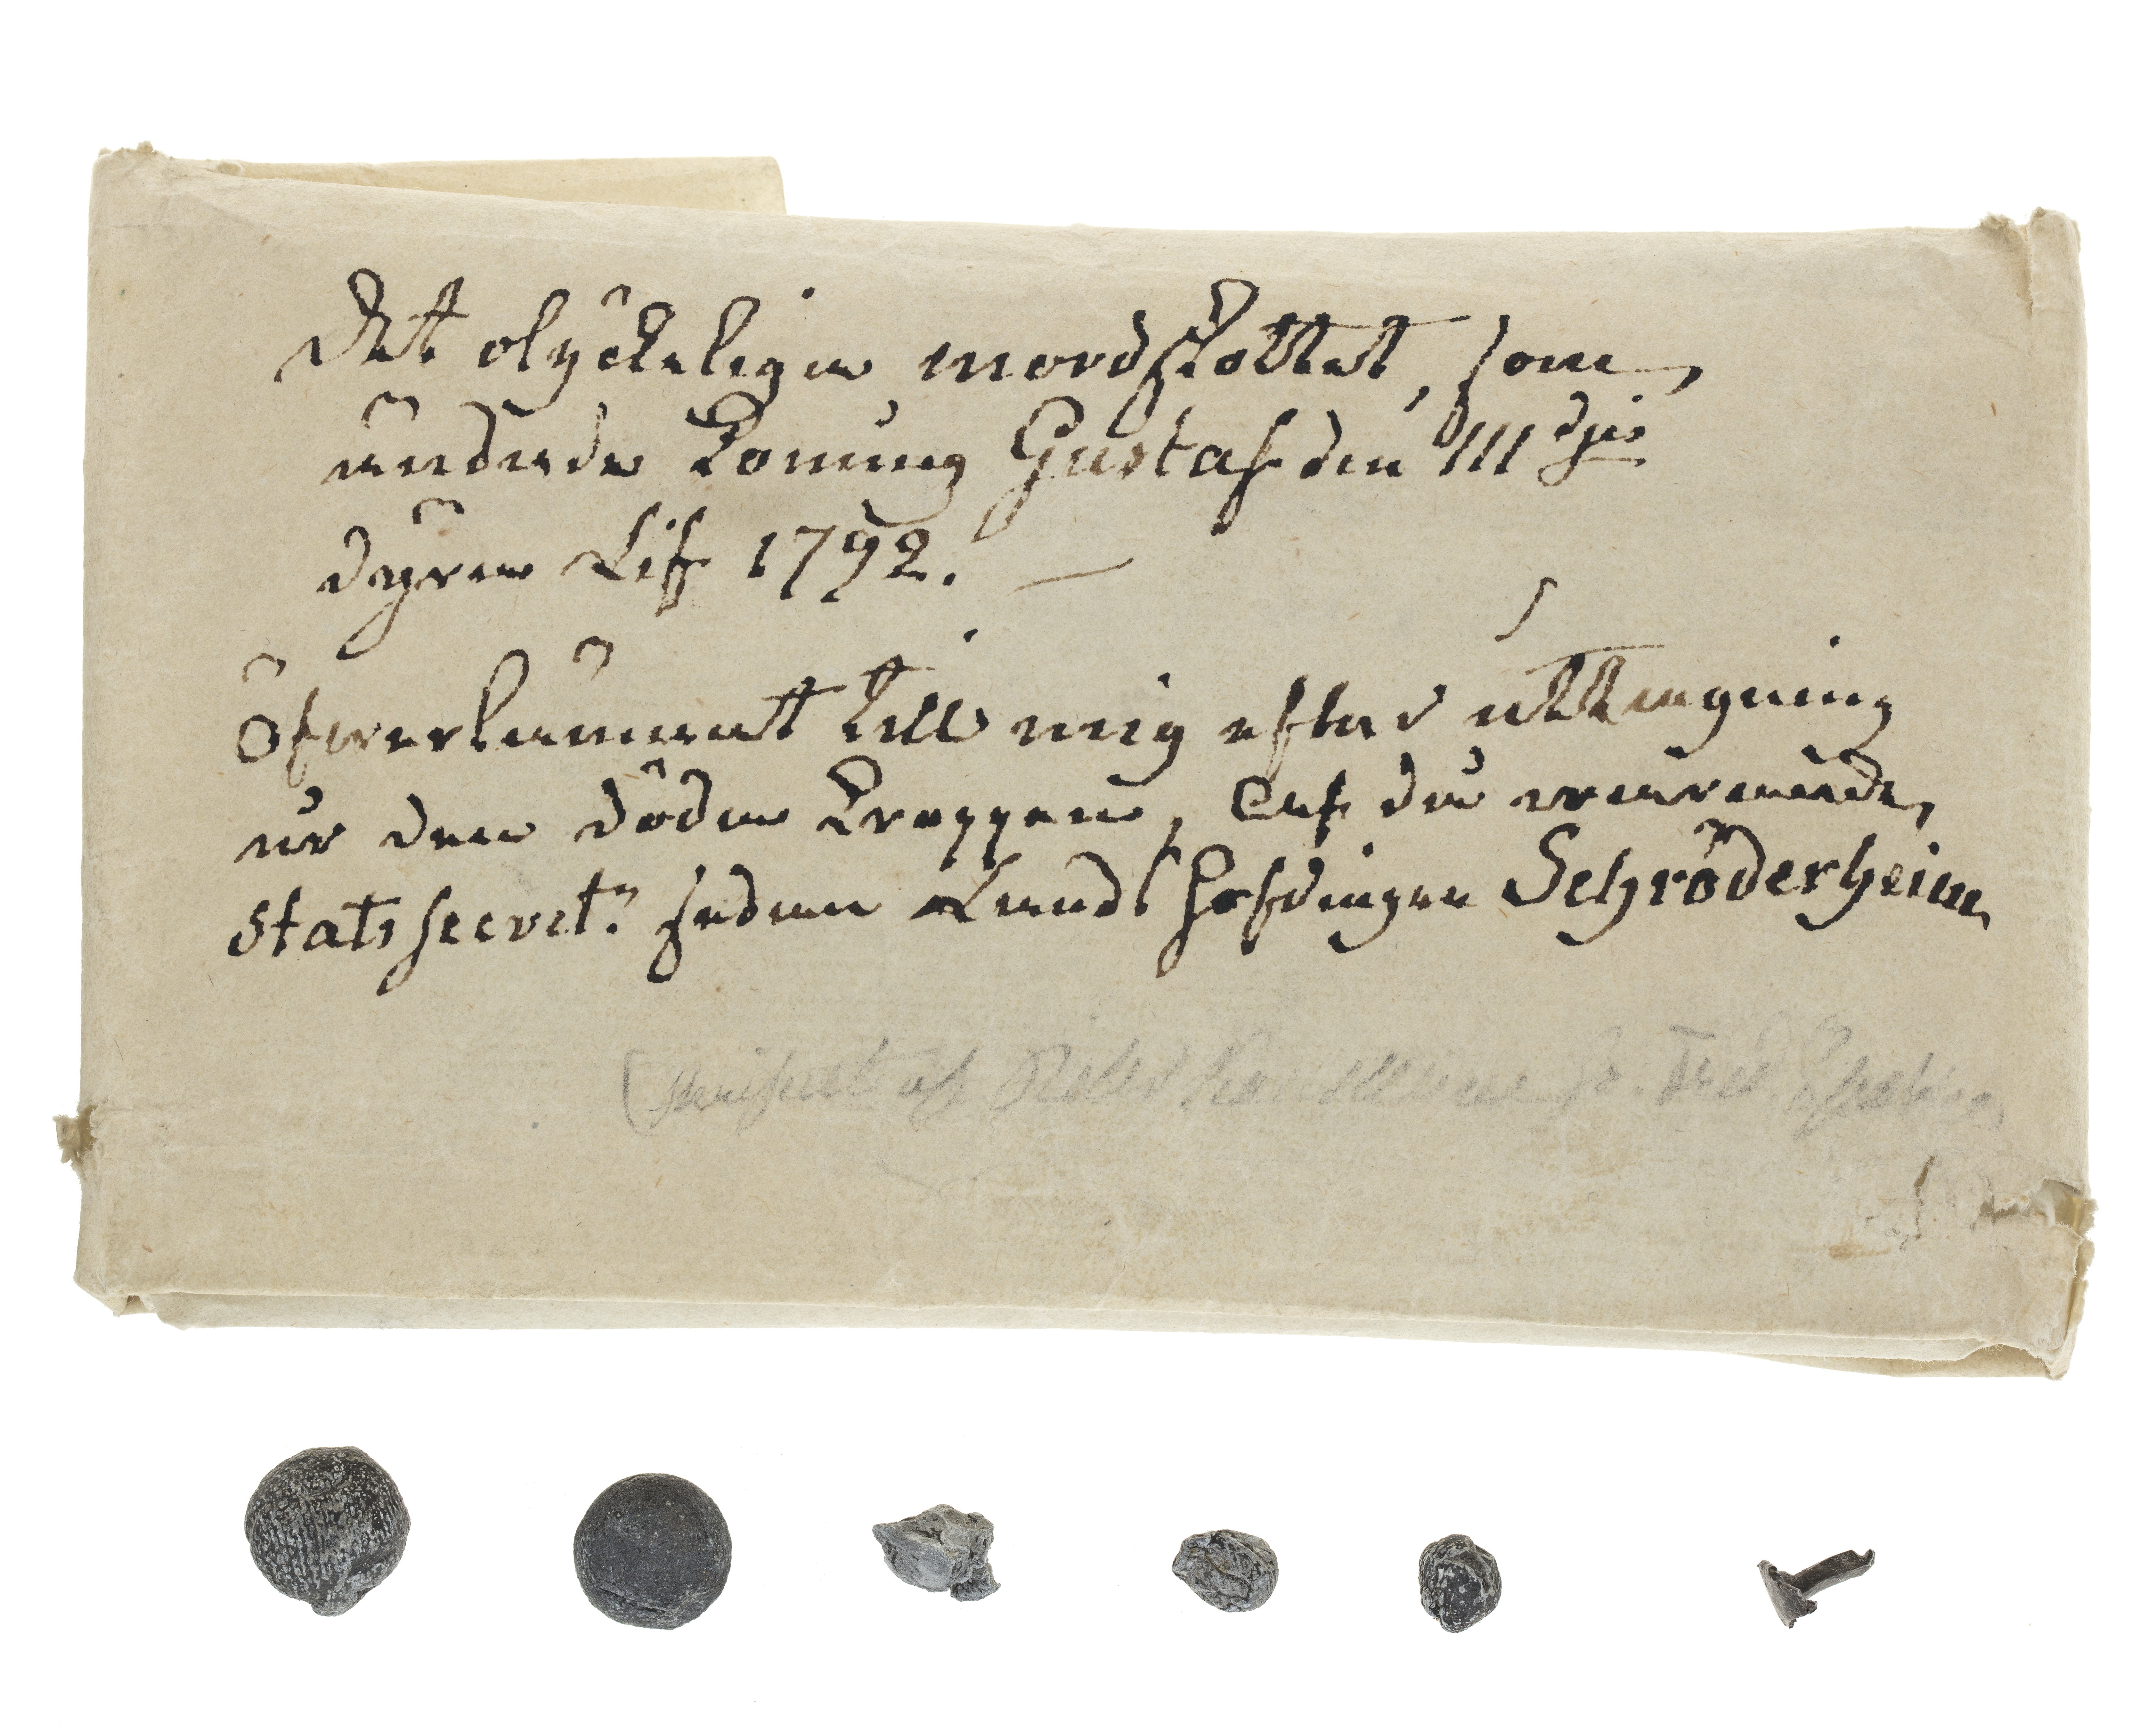 Det olÿckelige mordskottet, som
ändade Konung Gustaf den III dje
dÿra Lif 1792. —
Öfverlämnat till mig efter uttagning
ur den döda kroppen, Af den warande
Statssecret: sedan Landshöfdingen Schröderheim
af